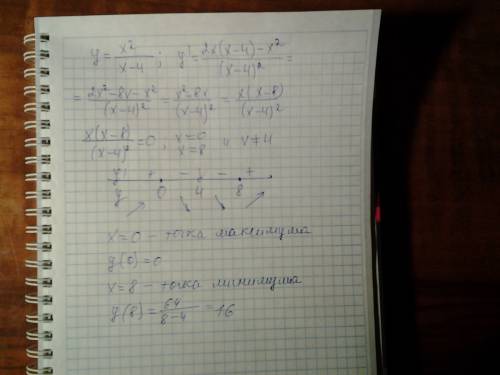 y = x²/(x-4); y' = (2x(x-4)-x²)/(x-4)² =
= (2x²-8x-x²)/(x-4)² = (x²-8x)/(x-4)² = x(x-8)/(x-4)²
x(x-8)/(x-4)² = 0, x=0 x=8 и x≠4
y' + - - +
y 0 4 8
↗ ↘ ↘ ↗
x=0 - точка максимума
y(0)=0
x=8 - точка минимума
y(8) = 64/(8-4) = 16